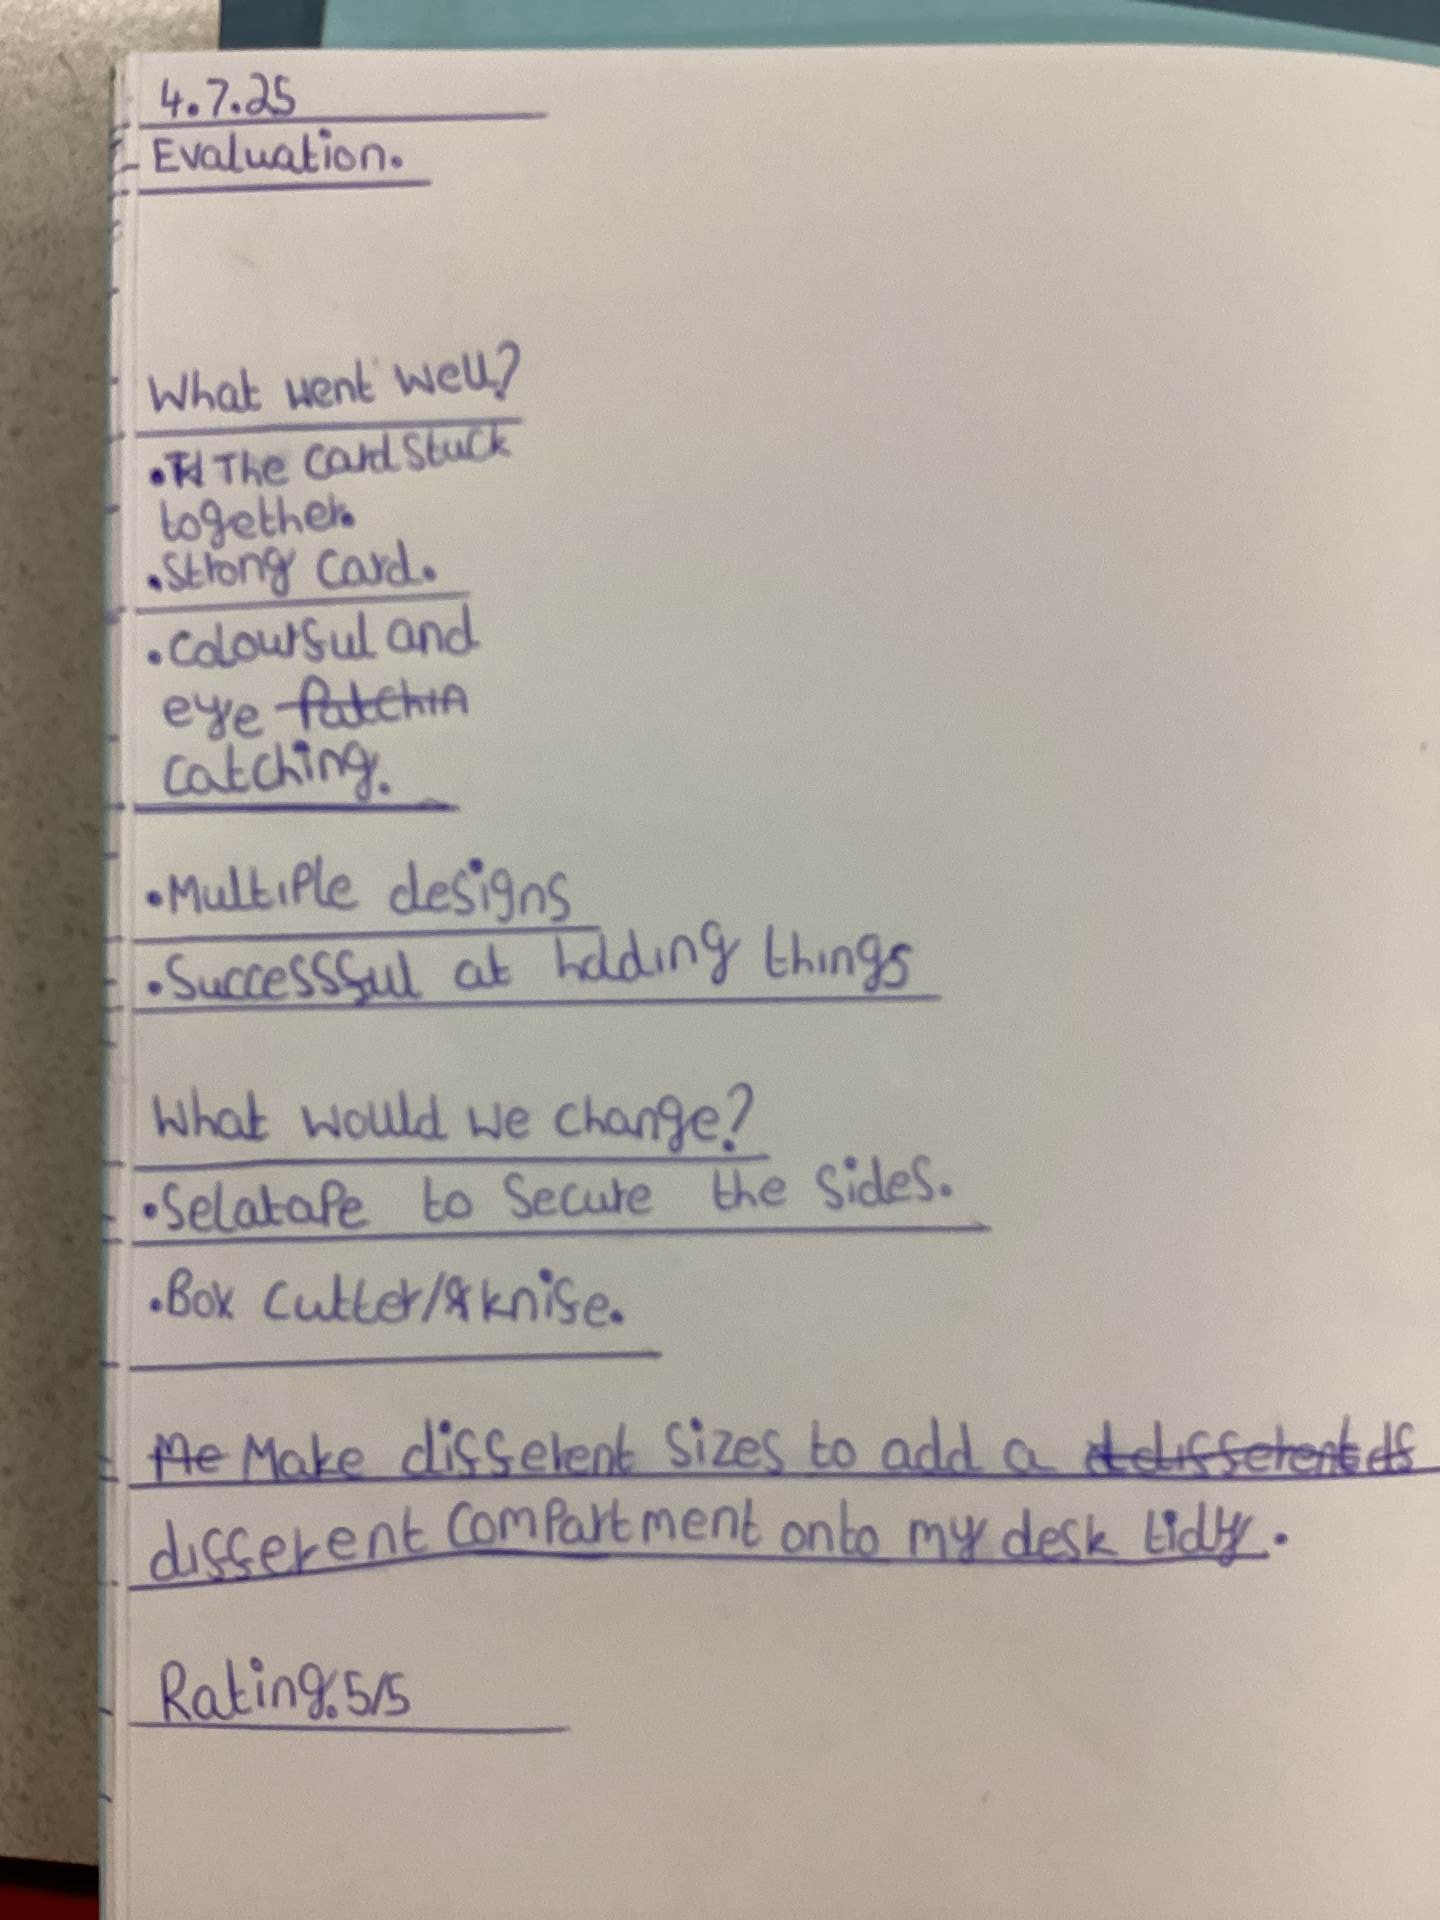 4.7.25
Evaluation.
What went well?
•The card stuck
together.
•Strong card.
•Colourful and
eye
catching.
•Multiple designs
•Successful at holding things
What would we change?
•Selatape to secure the sides.
•Box cutter/knife.
Make different sizes to add a
different compartment onto my desk tidy.
Rating:5/5